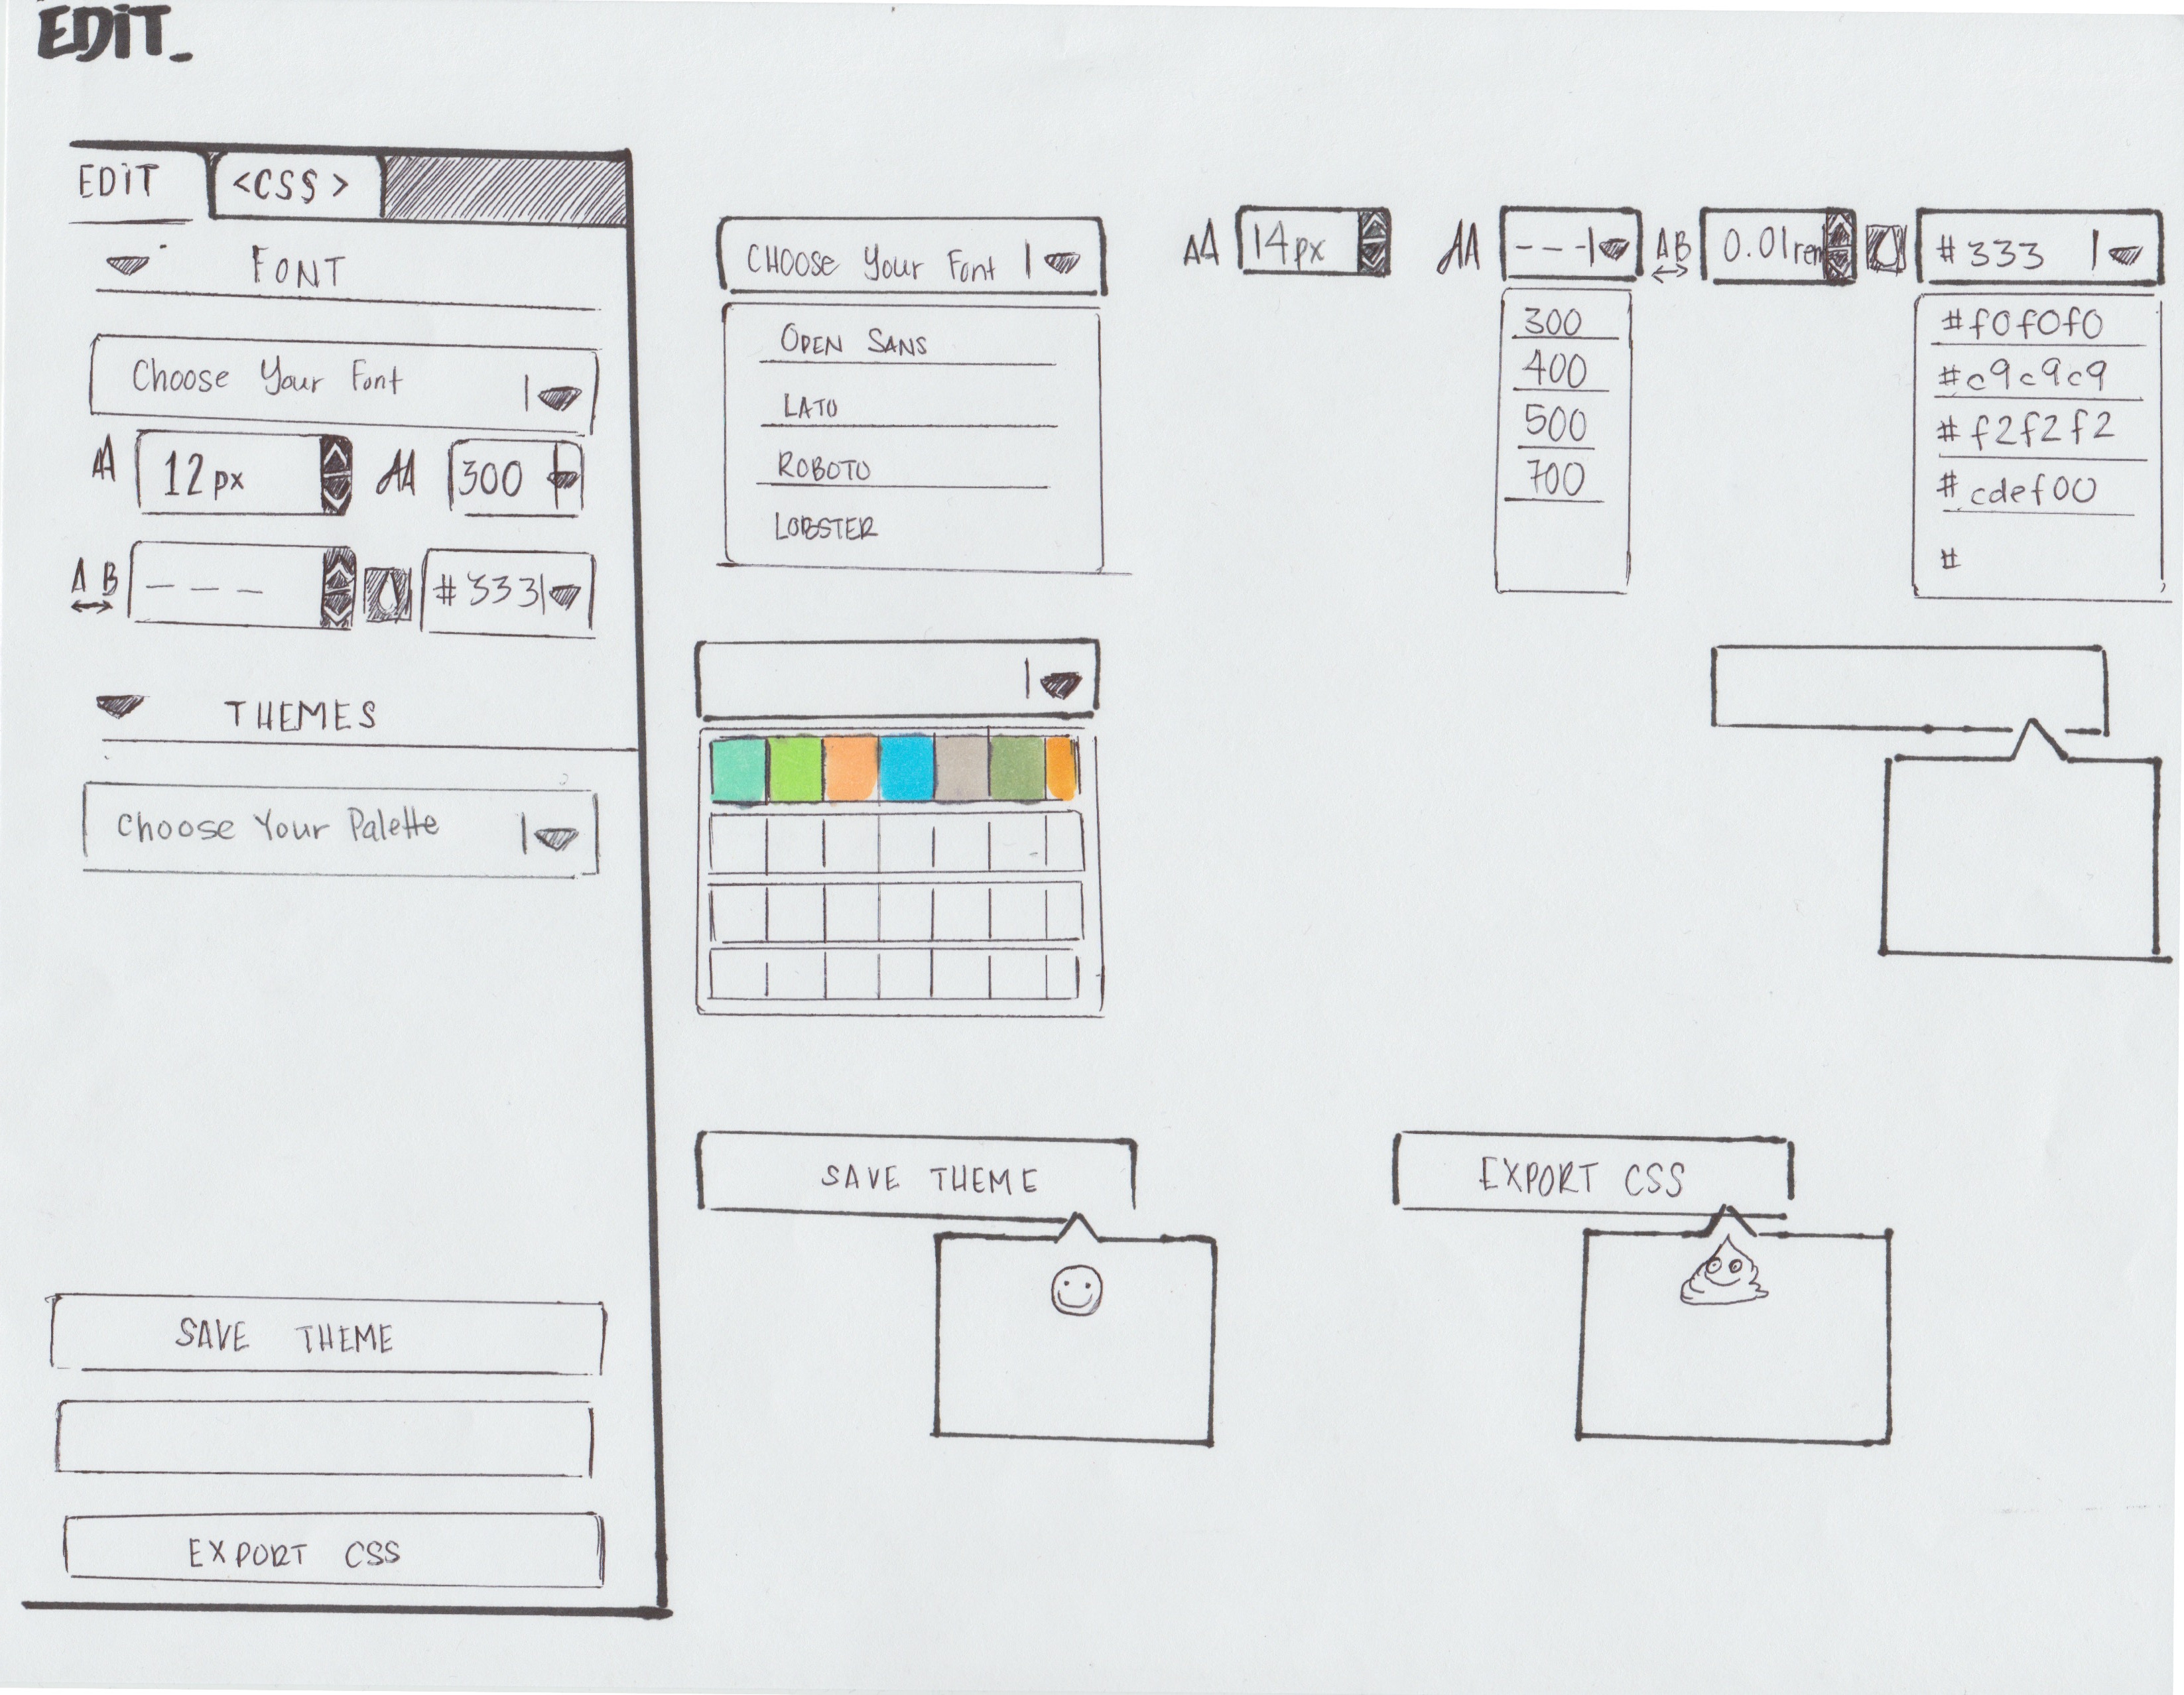 EDIT_
EDIT
<CSS>
FONT
Choose Your Font
AA 12px AA 300
A B --- #333
THEMES
Choose Your Palette
SAVE THEME
EXPORT CSS
CHOOSE Your Font
OPEN SANS
LATO
ROBOTO
LOBSTER
AA 14px
AA ---
300
400
500
700
AB 0.01rem
#333
#f0f0f0
#c9c9c9
#f2f2f2
#cdef00
#
SAVE THEME
EXPORT CSS